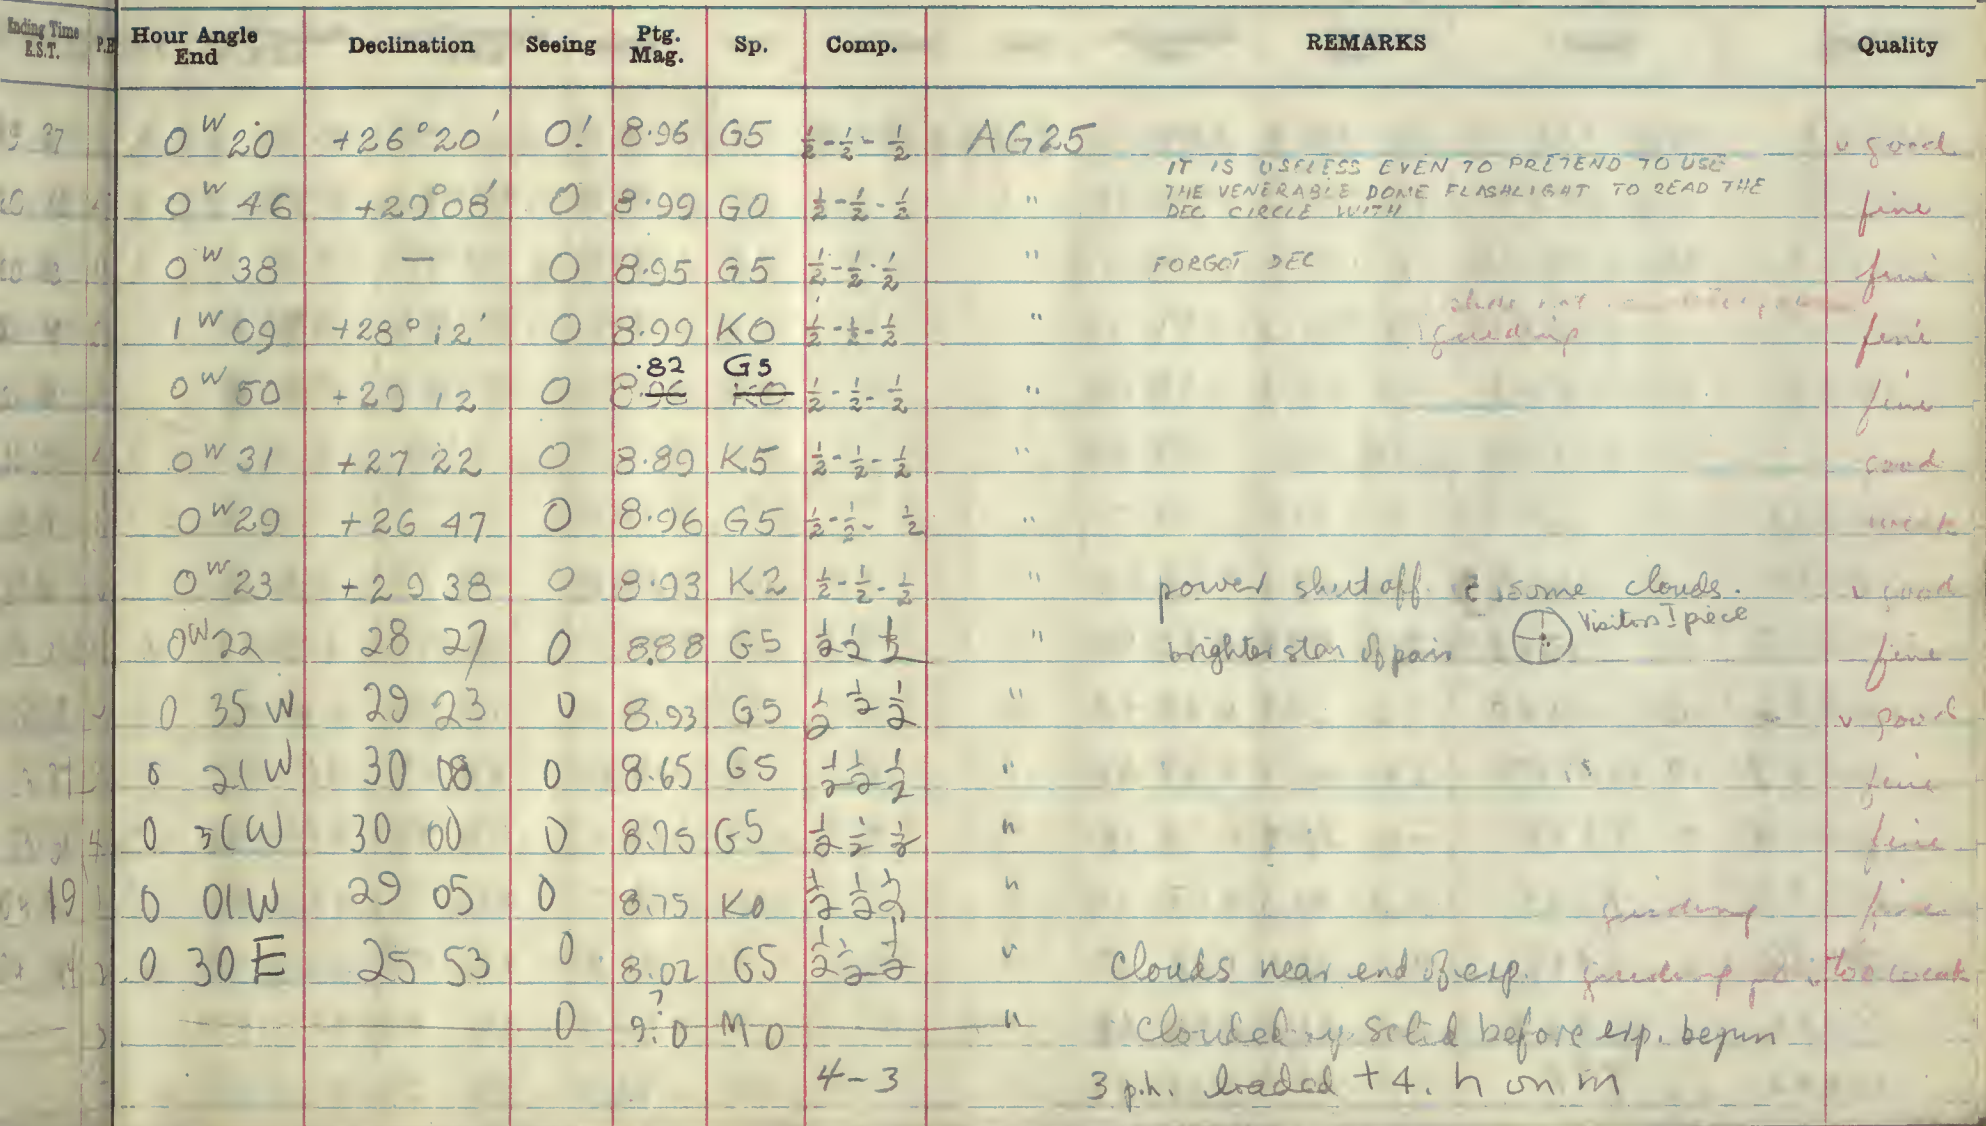 Ending Time E.S.T. P.E Hour Angle End Declination Seeing Ptg. Mag. Sp. Comp. REMARKS Quality
37 0 W 20 +26°20' 0! 8.96 G5 ½-½-½ AG25 v good
IT IS USELESS EVEN TO PRETEND TO USE
THE VENERABLE DOME FLASHLIGHT TO READ THE
DEC CIRCLE WITH
0 W 46 +29°08' 0 8.99 G0 ½-½-½ " fine
0 W 38 — 0 8.95 G5 ½-½-½ " FORGOT DEC fine
1 W 09 +28°12' 0 8.99 K0 ½-½-½ " guiding fine
.82 G5
0 W 50 +29 12 0 8.96 K0 ½-½-½ " fine
0 W 31 +27 22 0 8.89 K5 ½-½-½ " good
0 W 29 +26 47 0 8.96 G5 ½-½-½ " weak
0 W 23 +29 38 0 8.93 K2 ½-½-½ " power shut off & some clouds. v good
0 W 22 28 27 0 8.88 G5 ½ ½ ½ " brighter star of pair Visitors I piece fine
0 35 W 29 23 0 8.93 G5 ½ ½ ½ " v good
0 21 W 30 08 0 8.65 G5 ½ ½ ½ " fine
0 31 W 30 00 0 8.75 G5 ½ ½ ½ " fine
19 0 01 W 29 05 0 8.75 K0 ½ ½ ½ " guiding fine
0 30 E 25 53 0 8.02 G5 ½ ½ ½ " Clouds near end of exp. guiding too weak
0 9.0? M0 " Clouded up solid before exp. begun
4-3 3 p.h. loaded + 4. h on m